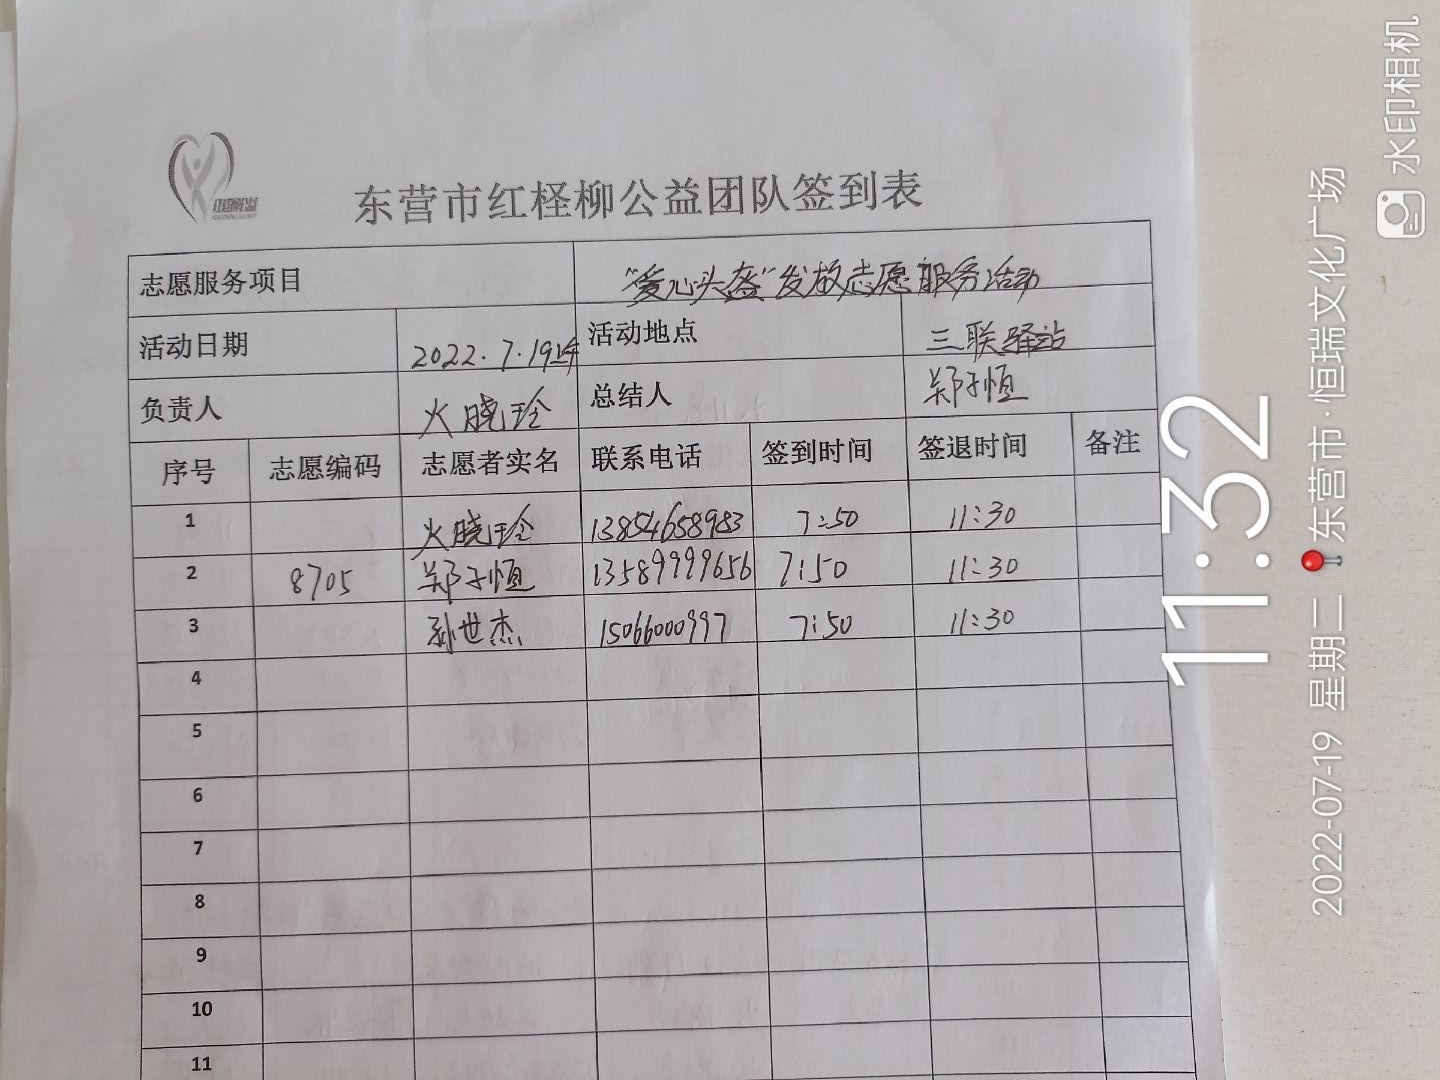 东营市红柽柳公益团队签到表
志愿服务项目 "爱心头盔"发放志愿服务活动
活动日期 2022.7.19 活动地点 三联驿站
负责人 火晓玲 总结人 郑子恒
序号 志愿编码 志愿者实名 联系电话 签到时间 签退时间 备注
1 火晓玲 13854658983 7:50 11:30
2 8705 郑子恒 13589999656 7:50 11:30
3 孙世杰 15066000997 7:50 11:30
4
5
6
7
8
9
10
11
11:32
2022-07-19 星期二 东营市·恒瑞文化广场
水印相机